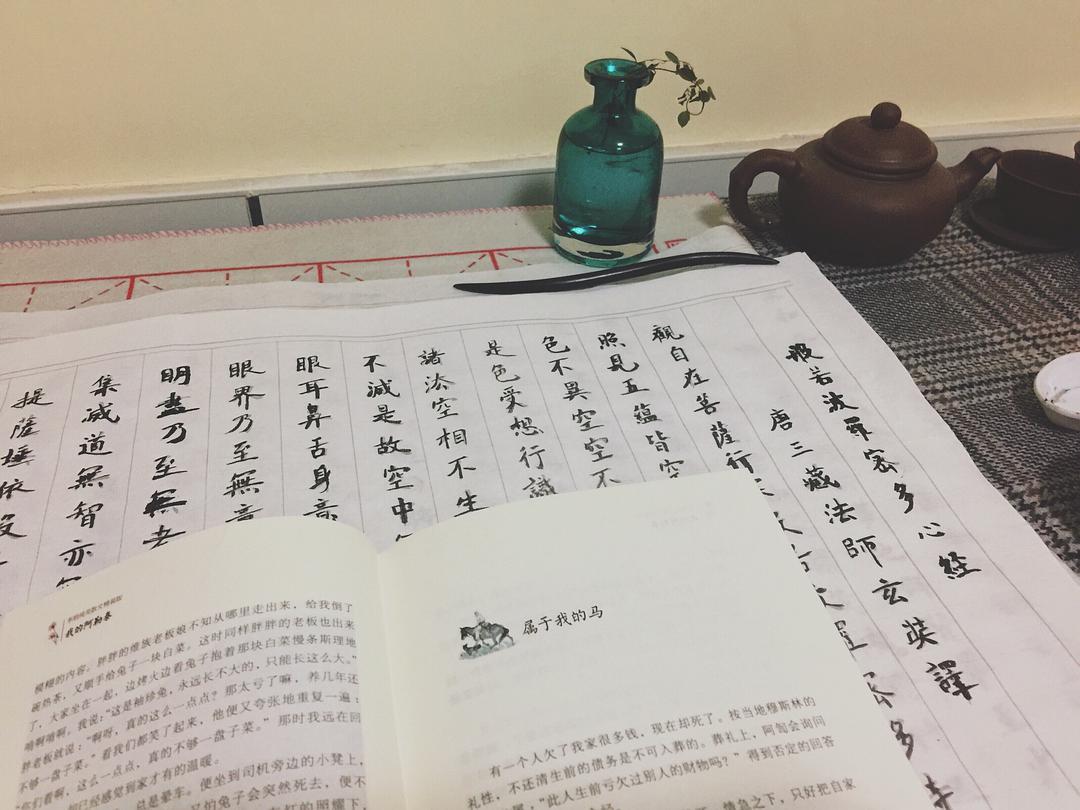 般若波羅密多心経
唐三藏法師玄奘譯
觀自在菩薩行
照見五蘊皆空
色不異空空不
是色受想行識
諸法空相不生
不減是故空中
眼耳鼻舌身意
眼界乃至無意
明盡乃至無老
集滅道無智亦
提薩埵依般
我的阿勒泰
模糊的内容。胖胖的维族老板娘不知从哪里走出来，给我倒了
碗热茶，又顺手给兔子一块白菜。这时同样胖胖的老板也出来
了，大家坐在一起，边烤火边看兔子抱着那块白菜慢条斯理地
啃啊啃啊。我说：“这是袖珍兔，永远长不大的，只能长这么大。”
胖老板就说：“啊呀，真的这么一点点？那太亏了嘛，养几年还
不够一盘子菜。”看我们都笑了起来，他便又夸张地重复一遍：
“你们看啊，这么一点点，真的不够一盘子菜。”那时我远在回
却已经感觉到家才有的温暖。
总是晕车。便坐到司机旁边的小凳上，
怕兔子会突然死去，便不
的照耀下，
属于我的马
有一个人欠了我家很多钱，现在却死了。按当地穆斯林的
礼性，不还清生前的债务是不可入葬的。葬礼上，阿訇会询问
属，“此人生前亏欠过别人的财物吗？”得到否定的回答
情急之下，只好把自家